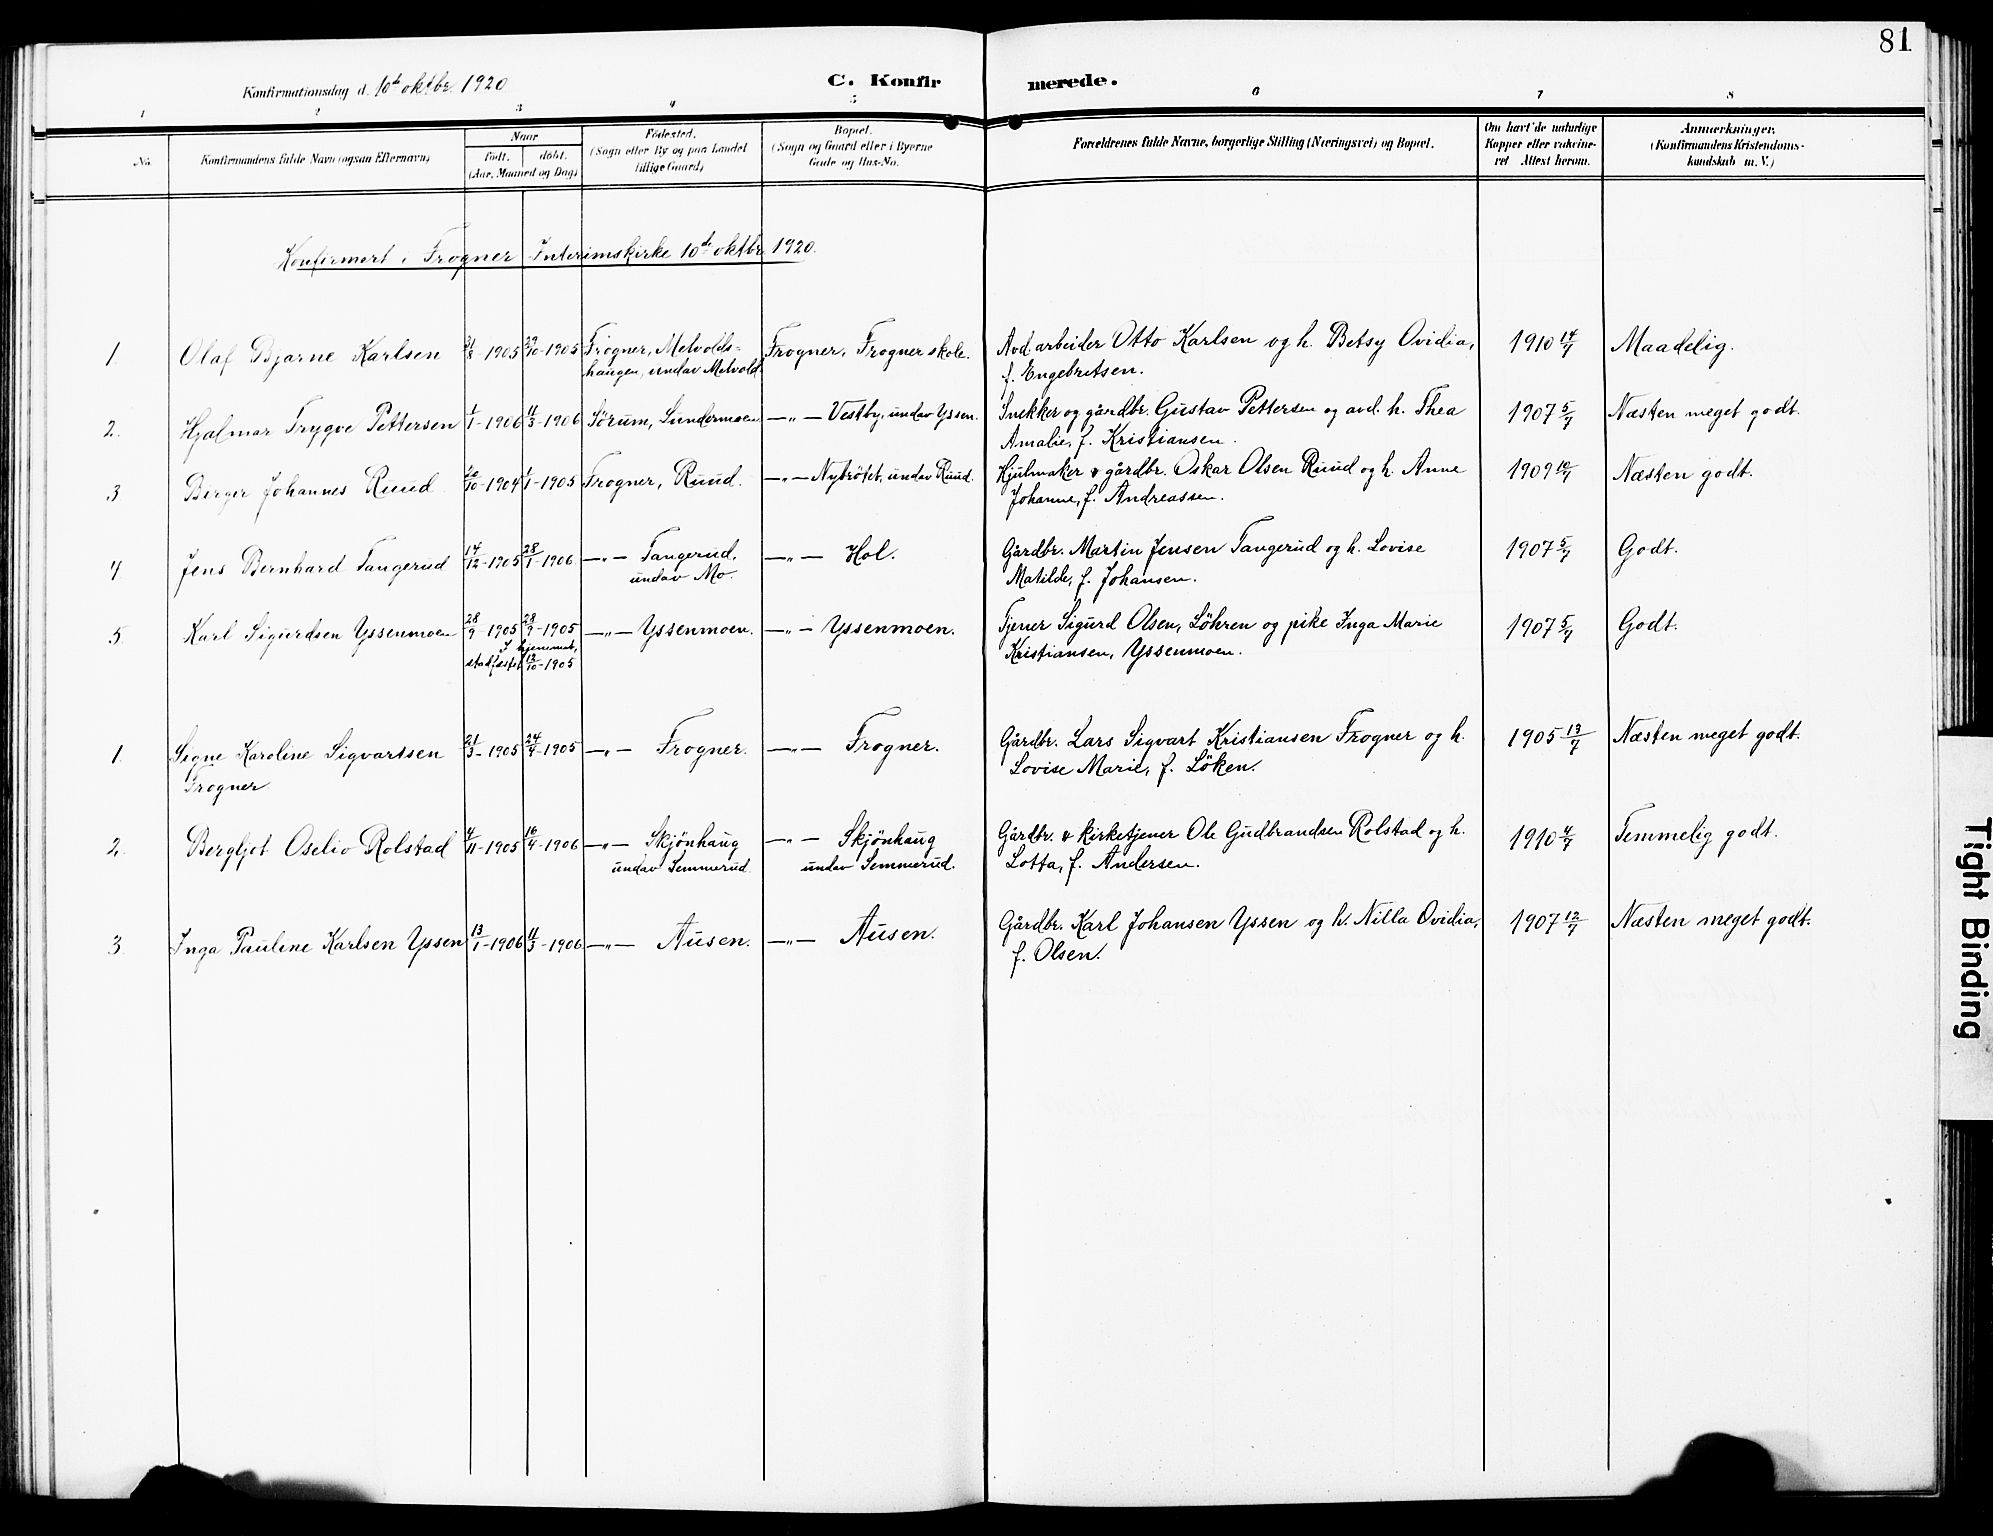 81
Konfirmationsdag d. 10de oktbr. 1920
C. Konfirmerede.
1 2 3 4 5 6 7 8
No. Konfirmandens fulde Navn (ogsaa Efternavn) Naar født. døbt. (Aar, Maaned og Dag) Fødested. (Sogn eller By og paa Landet tillige Gaard) Bopæl. (Sogn og Gaard eller i Byerne Gade og Hus-No. Forældrenes fulde Navne, borgerlige Stilling (Næringsvei) og Bopæl. Om havt de naturlige Kopper eller vakcineret Attest herom. Anmærkninger. (Konfirmandens Kristendomskundskab m. V.)
Konfirmert i Frogner Interimskirke 10de oktbr. 1920.
1 Olaf Bjarne Karlsen 31/8-1905 29/10-1905 Frogner, Melvolds- Frogner, Frogner skole. Avd. arbeider Otto Karlsen og h. Betsy Ovidia, 1910 14/7 Maadelig.
haugen, undav Melvold. f. Engebritsen.
2. Hjalmar Trygve Pettersen 1/1-1906 11/3-1906 Sörum, Sundermoen —„— Vestby, undav Yssen. Snekker og gårdbr. Gustav Pettersen og avd. h. Thea 1907 5/7 Næsten meget godt.
Amalie, f. Kristiansen.
3 Birger Johannes Ruud 20/10-1904 1/1-1905 Frogner, Ruud. —„— Nybrötet, undav Ruud. Hjulmaker & gårdbr. Oskar Olsen Ruud og h. Anne 1909 10/7 Næsten godt.
Johanne, f. Andreassen.
4 Jens Bernhard Tangerud 14/12-1905 28/1-1906 —„— Tangerud. —„— Hol. Gårdbr. Martin Jensen Tangerud og h. Lovise 1907 5/7 Godt.
undav Mo. Matilde, f. Johansen.
5. Karl Sigurdsen Yssenmoen 28/9-1905 28/9-1905 —„— Yssenmoen. —„— Yssenmoen. Tjener Sigurd Olsen, Löhren og pike Inga Marie 1907 5/7 Godt.
I hjemmet, Kristiansen, Yssenmoen.
stadfæstet 12/10-1905
1. Signe Karoline Sigvartsen 21/3-1905 24/4-1905 —„— Frogner. —„— Frogner. Gårdbr. Lars Sigvart Kristiansen Frogner og h. 1905 13/7 Næsten meget godt.
Frogner Lovise Marie, f. Löken.
2, Bergljot Oselio Rolstad 4/11-1905 16/4-1906 —„— Skjönhaug —„— Skjönhaug Gårdbr. & kirketjener Ole Gudbrandsen Rolstad og h. 1910 4/7 Temmelig godt.
undav Semmerud. undav Semmerud. Lotta, f. Andersen.
3 Inga Pauline Karlsen Yssen 13/1-1906 11/3-1906 —„— Ausen. —„— Ausen. Gårdbr. Karl Johansen Yssen og h. Nilla Ovidia, 1907 12/7 Næsten meget godt.
f. Olsen.
Tight Binding